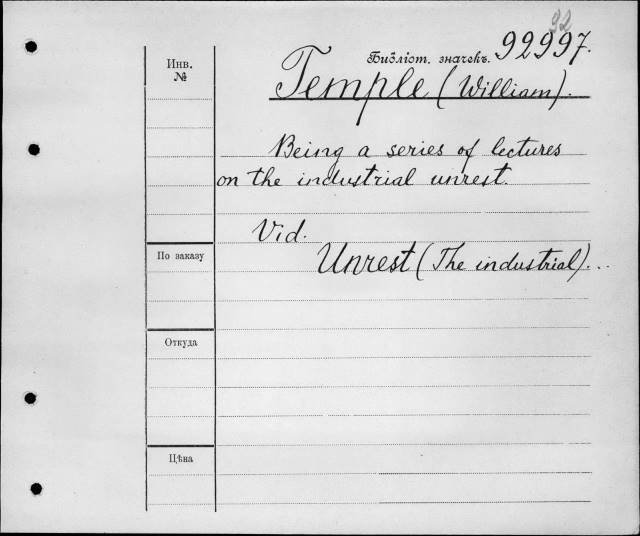 32
Библіот. значекъ. 92997.
Инв.
№
Temple (William).
Being a series of lectures
on the industrial unrest.
Vid.
По заказу
Unrest (The industrial)...
Откуда
Цѣна